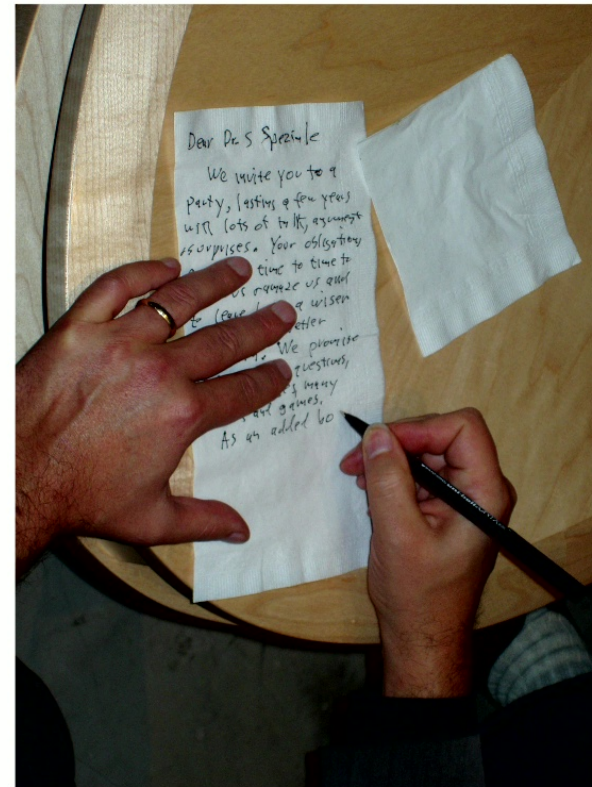 Dear Dr. S Speziale
We invite you to a
party, lasting a few years
with lots of talk, argument
surprises. Your obligations
time to time to
us amaze us and
leave a wiser
We promise
questions,
many
and games.
As an added bo